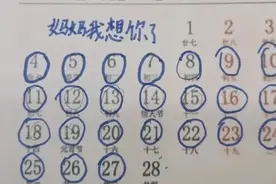 妈妈我想你了
1 2 3
廿七 廿八
4 5 6 7 8 9 10
11 12 13 14 15 16 17
情人节
18 19 20 21 22 23 24
元宵节 十六 十七 十八 十九
25 26 27 28